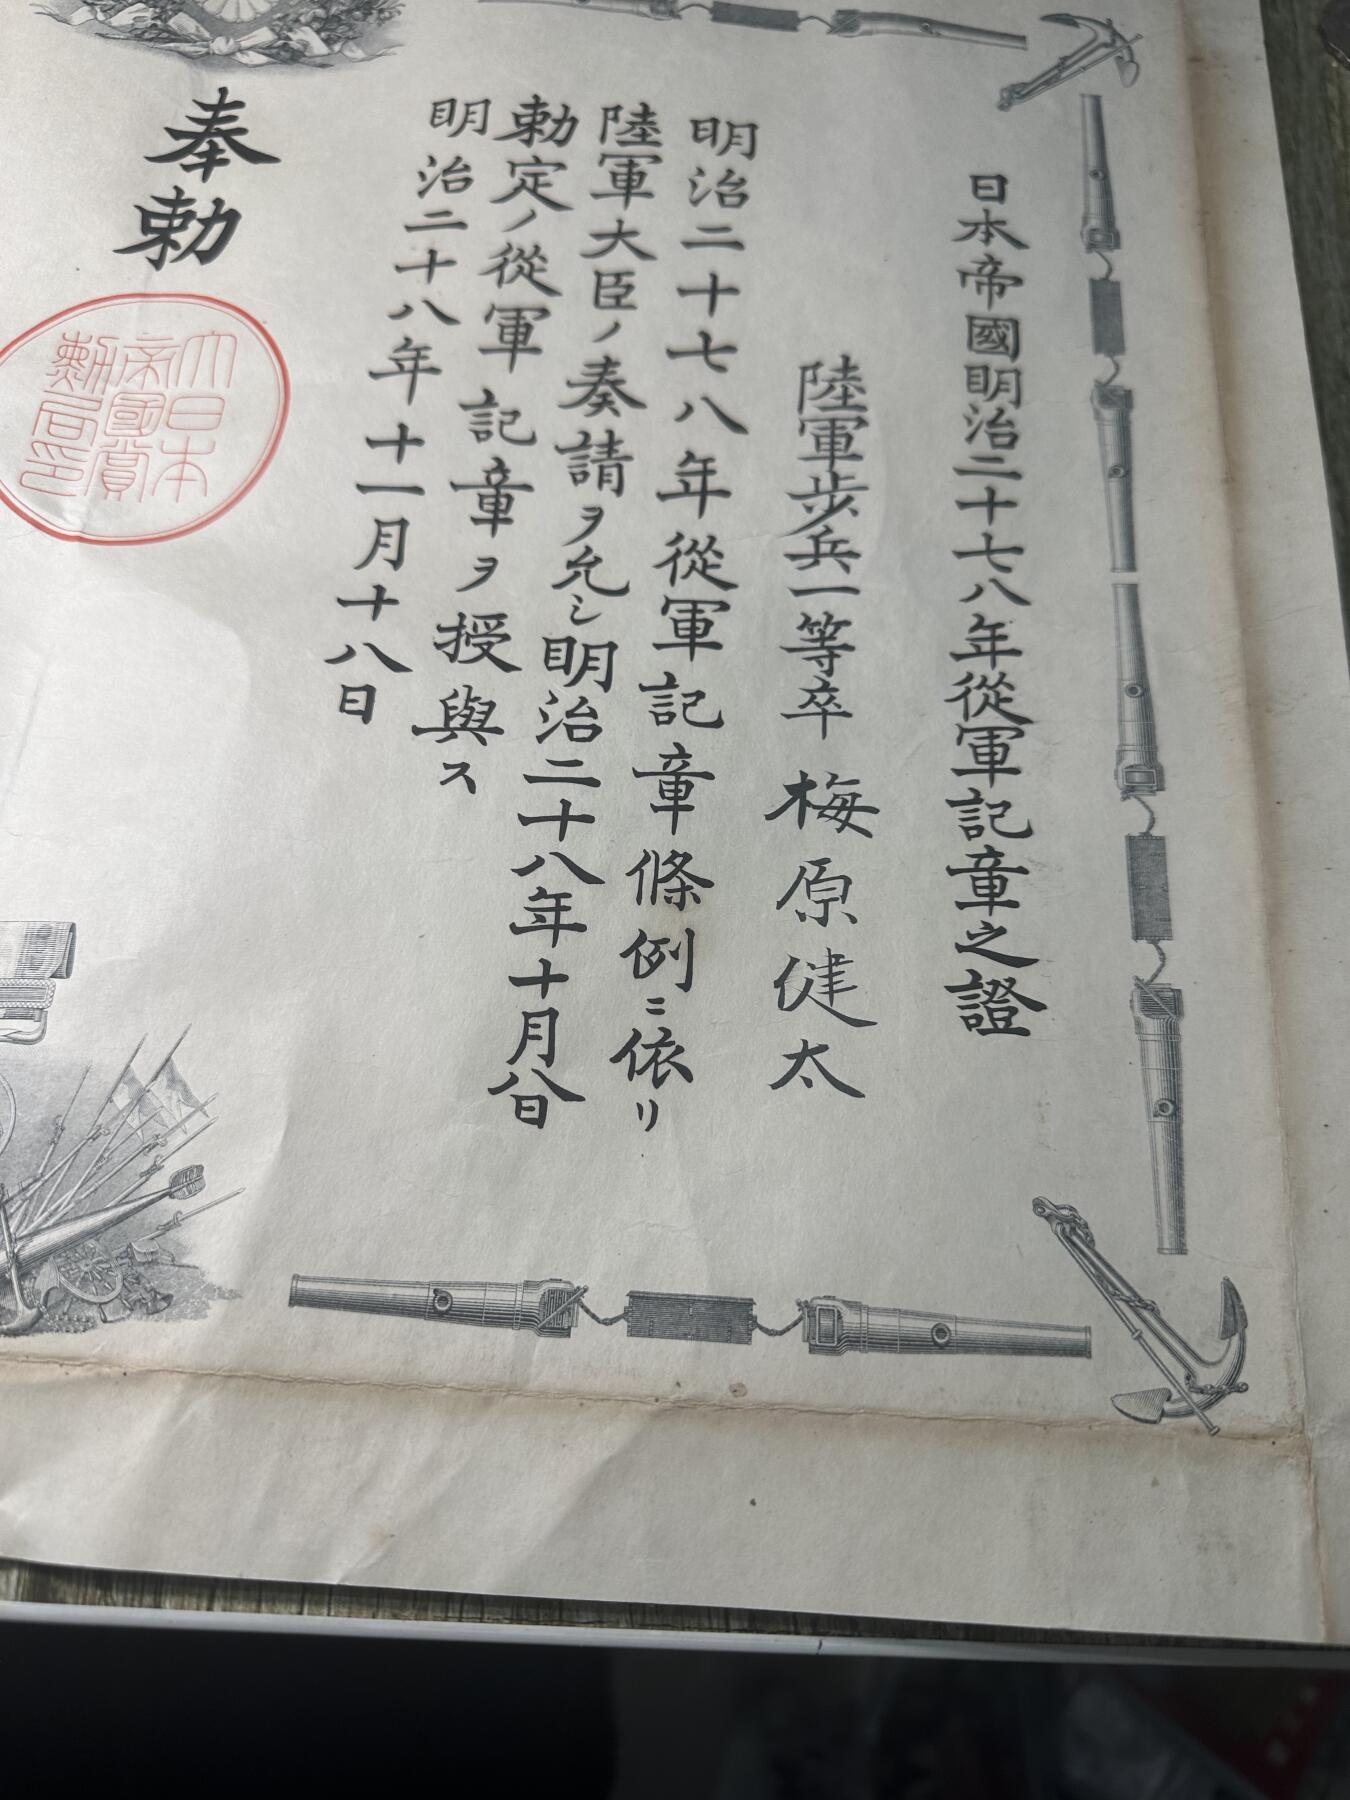 日本帝國明治二十七八年從軍記章之證
陸軍歩兵一等卒 梅原健太
明治二十七八年從軍記章條例ニ依リ
陸軍大臣ノ奏請ヲ允シ明治二十八年十月八日
勅定ノ從軍記章ヲ授與ス
明治二十八年十一月十八日
奉勅
大日本
帝國賞
勲局印